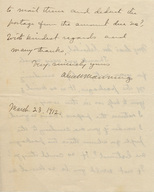 to mail them and deduct the
postage from the amount due me?
With kindest regards and
many thanks,
Very sincerely yours
March 23, 1912.